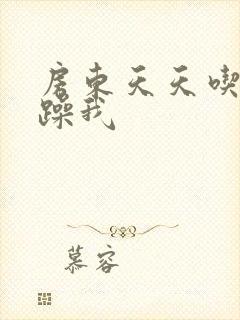 房东天天喫
躁我
慕容